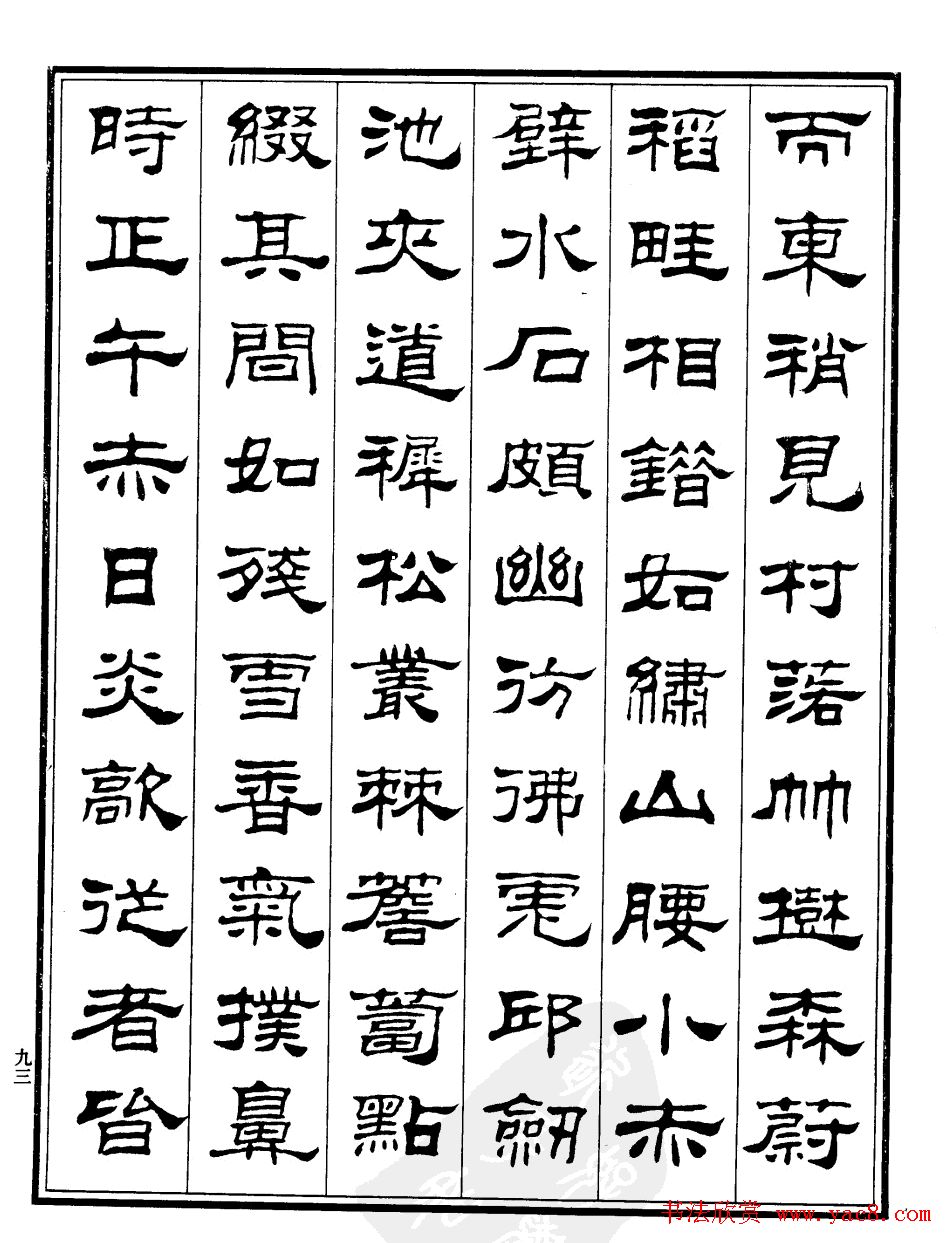 而東稍見村落竹樹森蔚
稻畦相錯如繡山腰小赤
壁水石頗幽彷彿虎邱劒
池夾道稺松叢棘薝蔔點
綴其間如殘雪香氣撲鼻
時正午赤日炎歊從者皆
九三
书法欣赏 www.yac8.com